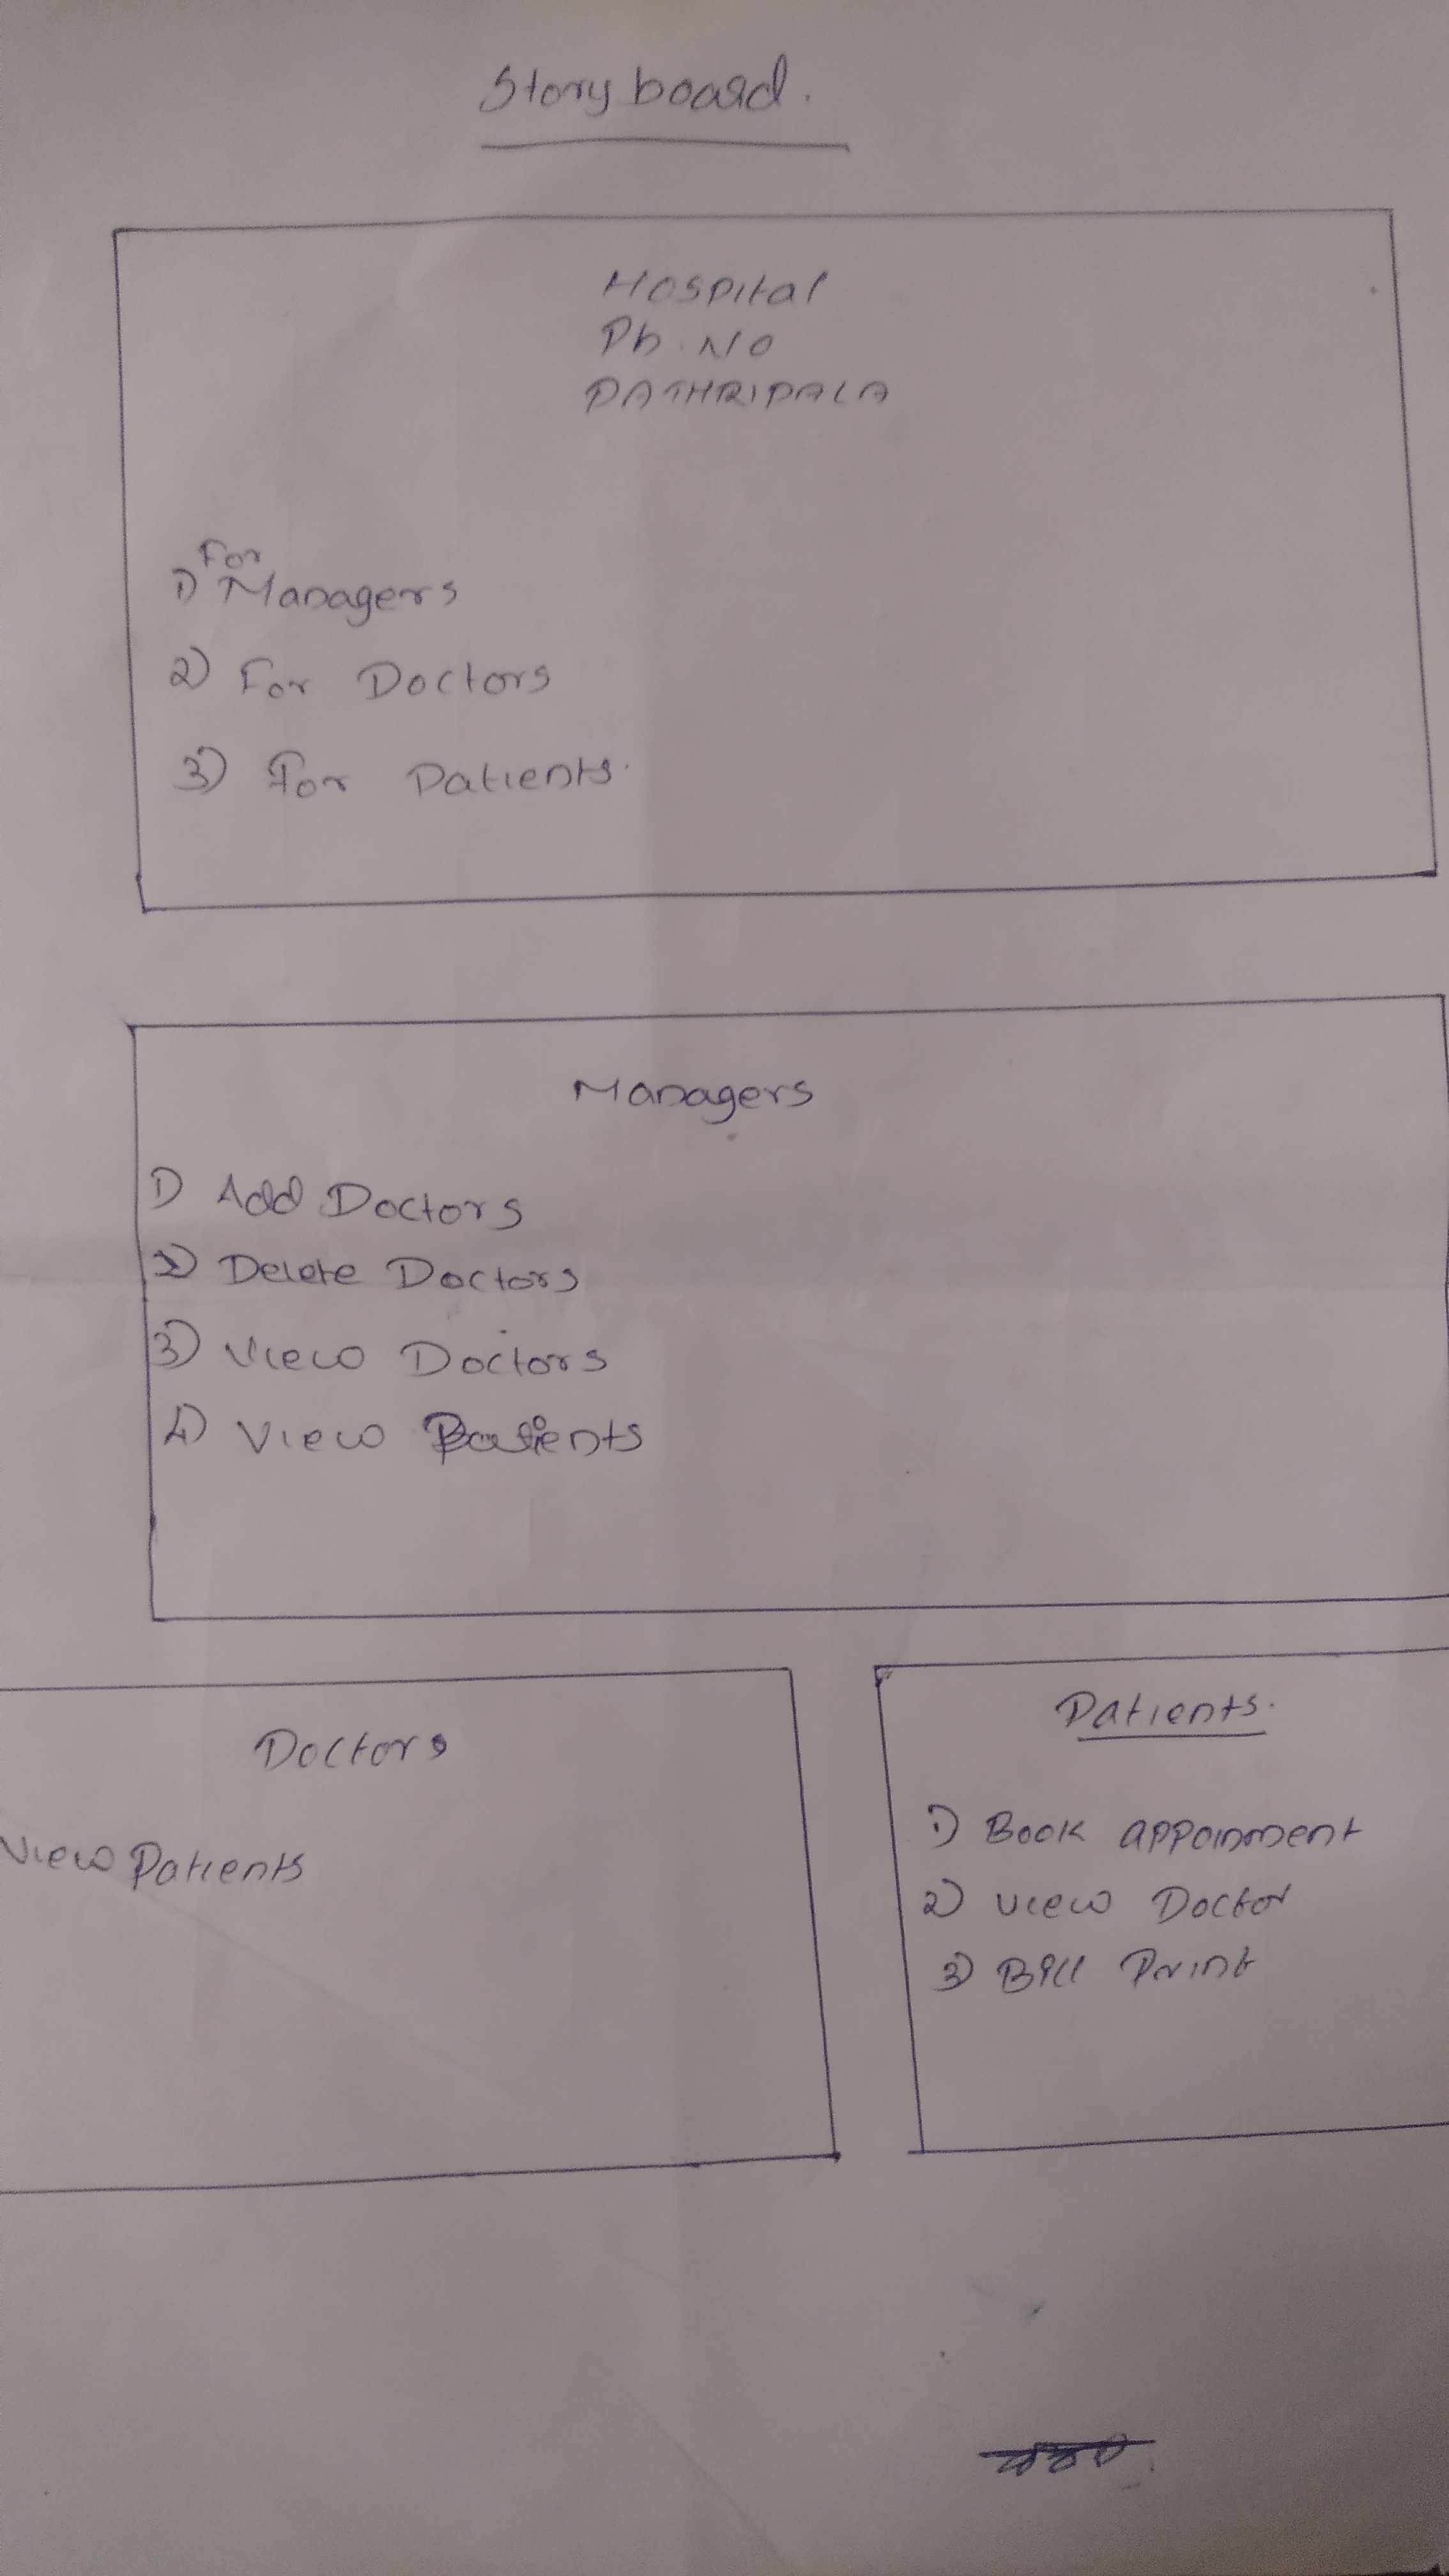 Story board.
Hospital
Ph. No
PATHRIPALA
1) For Managers
2) For Doctors
3) For Patients.
Managers
1) Add Doctors
2) Delete Doctors
3) View Doctors
4) View Patients
Doctors
View Patients
Patients.
1) Book appoinment
2) View Doctor
3) Bill Print